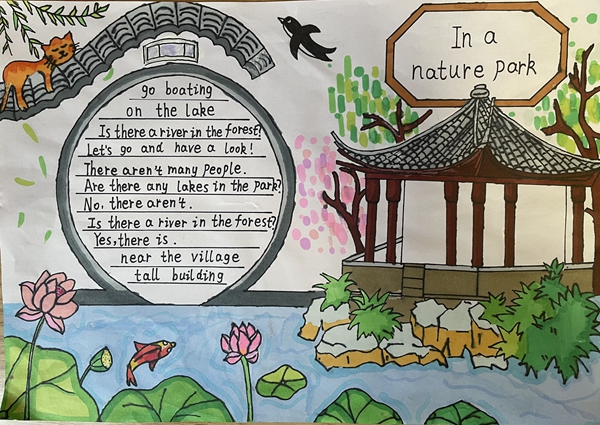 In a
nature park
go boating
on the lake
Is there a river in the forest?
Let's go and have a look!
There aren't many people.
Are there any lakes in the park?
No, there aren't.
Is there a river in the forest?
Yes, there is.
near the village
tall building